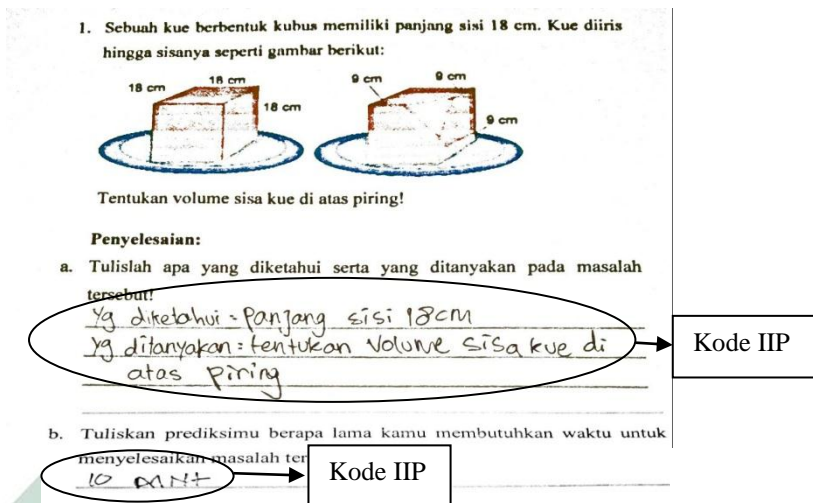 1. Sebuah kue berbentuk kubus memiliki panjang sisi 18 cm. Kue diiris
hingga sisanya seperti gambar berikut:
18 cm 18 cm 18 cm 9 cm 9 cm 9 cm
Tentukan volume sisa kue di atas piring!
Penyelesaian:
a. Tulislah apa yang diketahui serta yang ditanyakan pada masalah
tersebut!
Yg diketahui = panjang sisi 18cm
Yg ditanyakan = tentukan volume sisa kue di
atas piring
Kode IIP
b. Tuliskan prediksimu berapa lama kamu membutuhkan waktu untuk
menyelesaikan masalah ter
10 MNt
Kode IIP